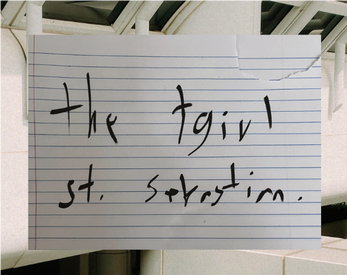 the tgirl
st. sebastian.